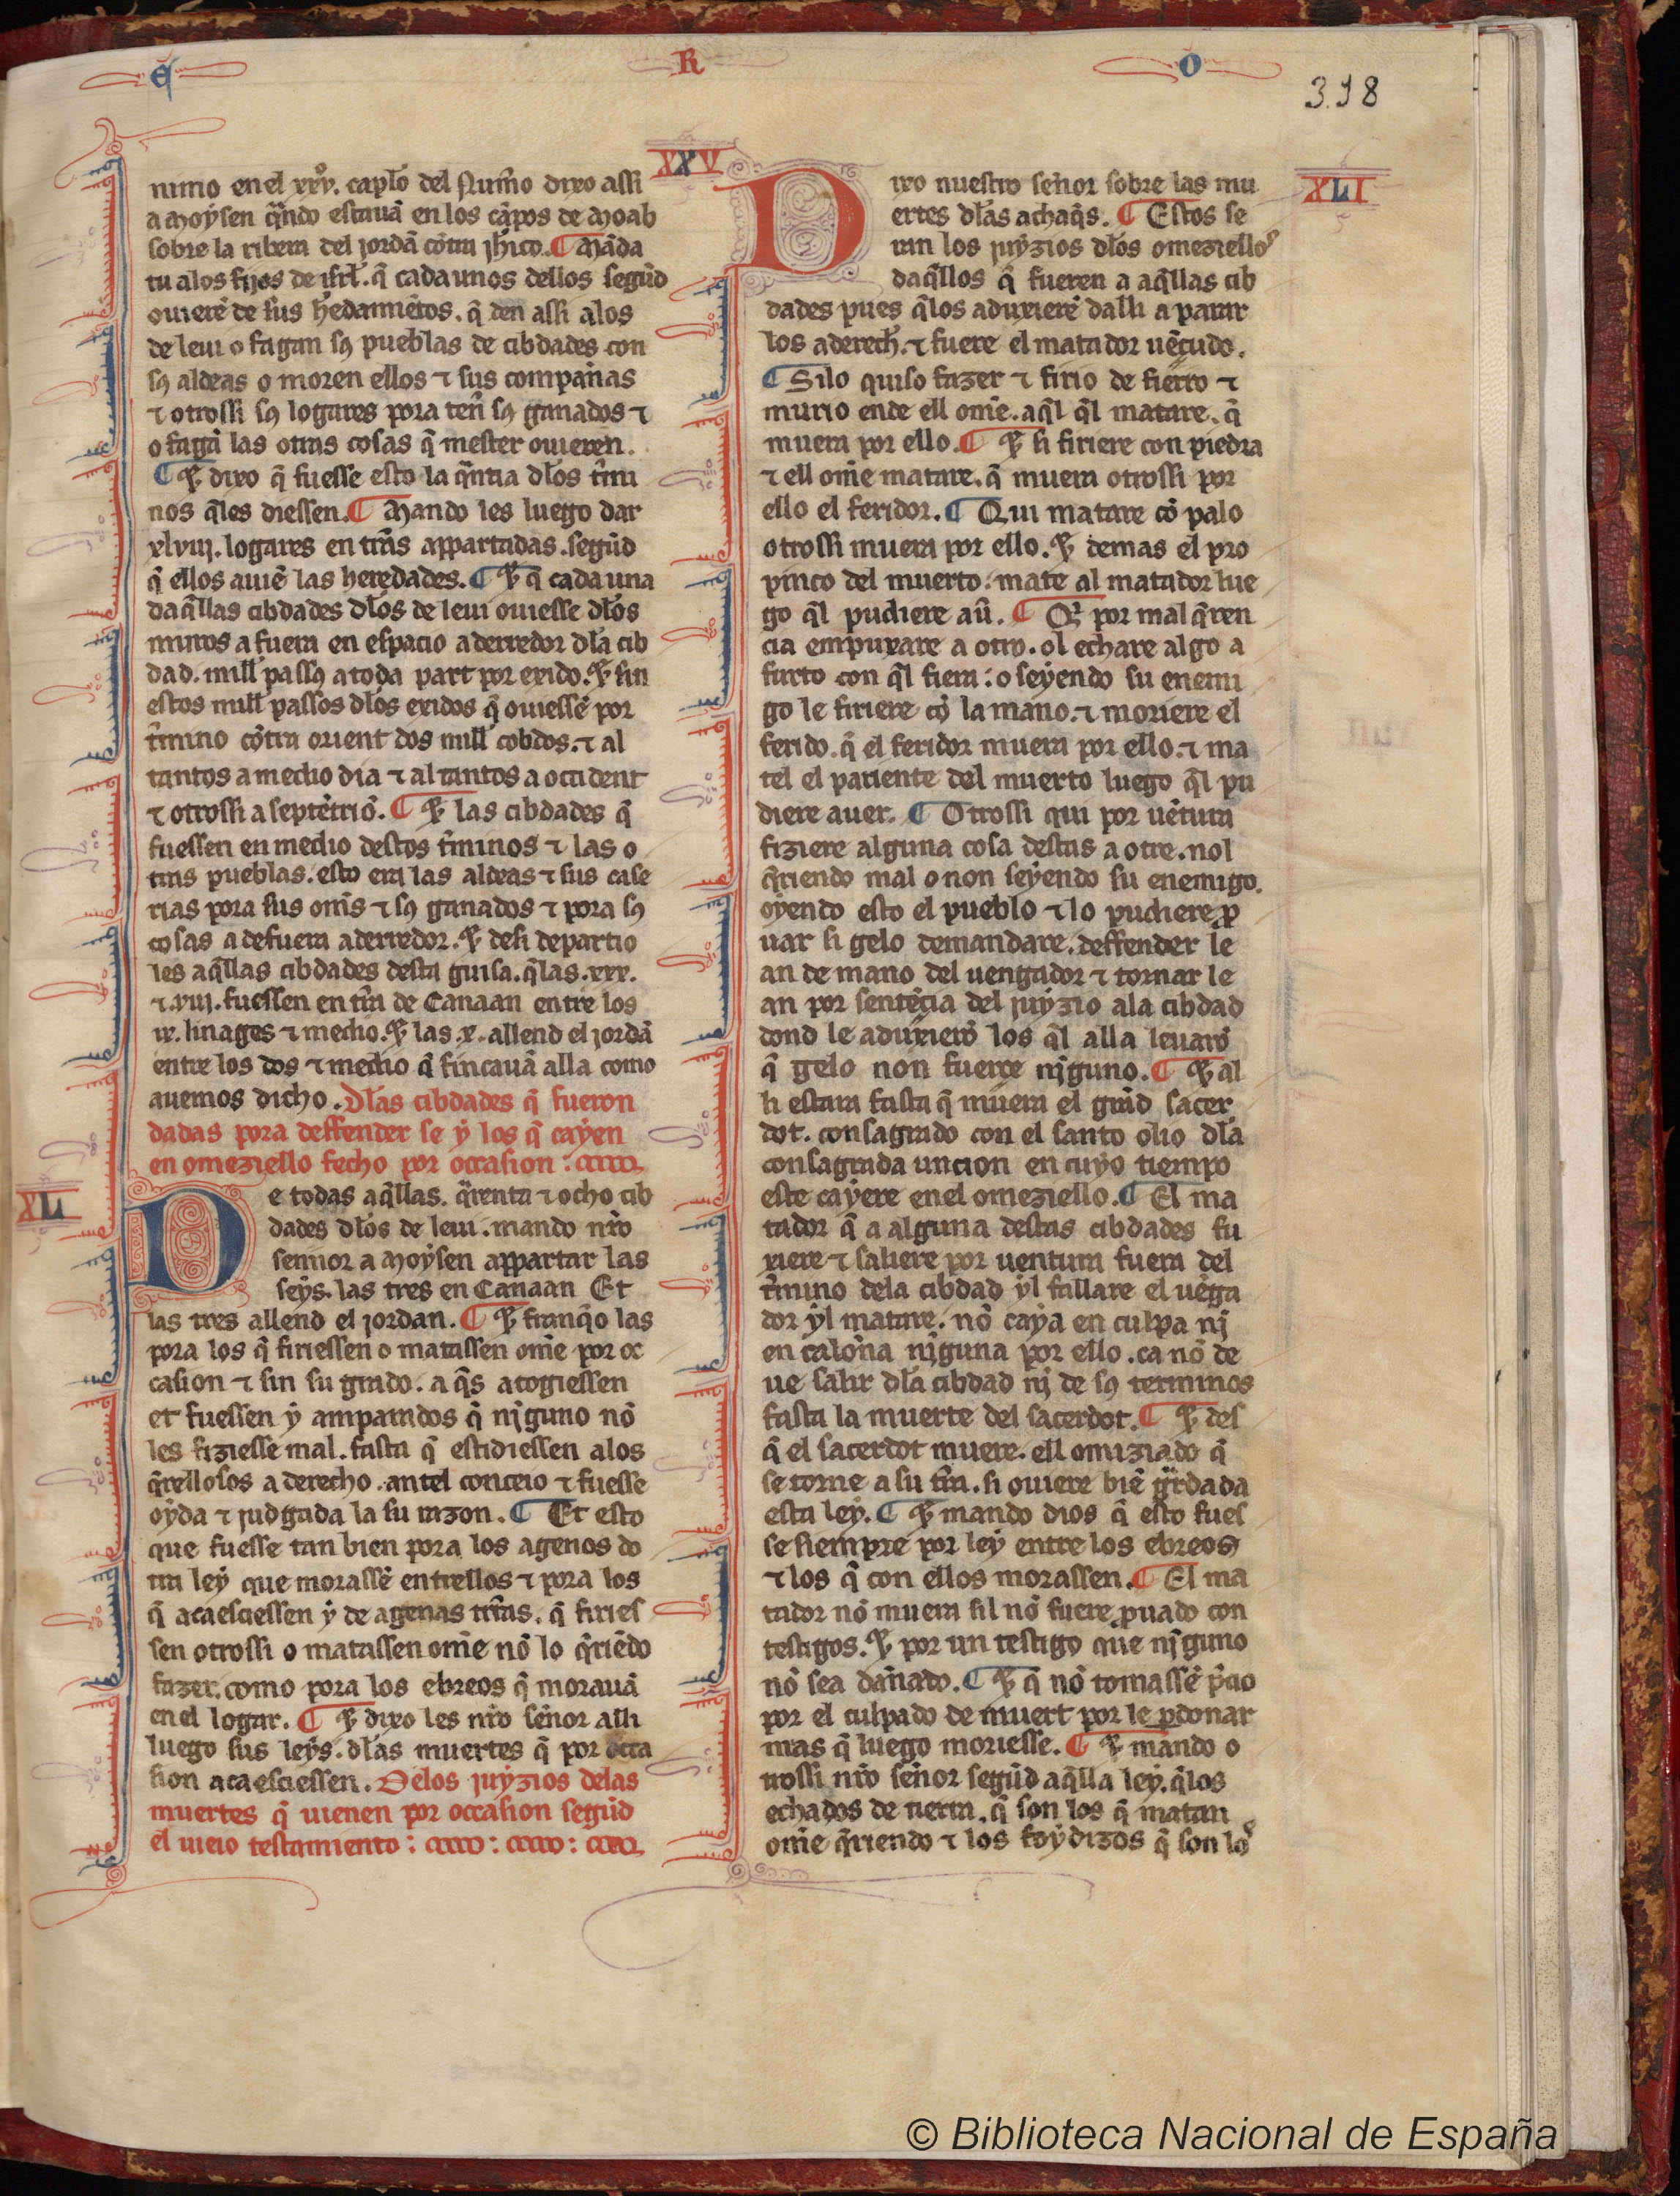 E R O
3.98
XXV
nimo en el xxxv. capło del Num̃o dixo assi
a Moysen q̃ndo estauã en los cãpos de Moab
sobre la ribera del jordã cõtra jħico. ¶ Mãda
tu alos fijos de isrł. q̃ cada unos dellos segũd
ouierẽ de sus hedamiẽtos. q̃ den assi alos
de leui o fagan sꝯ pueblas de cibdades con
sꝯ aldeas o moren ellos ⁊ sus companñas
⁊ otrossi sꝯ logares pora teñ sꝯ ganados ⁊
o fagã las otras cosas q̃ mester ouieren.
¶ ⁊ dixo q̃ fuesse esto la q̃ntia dłos t̃mi
nos q̃les diessen. ¶ Mando les luego dar
xlviij. logares en tr̃as appartadas. segũd
q̃ ellos auiẽ las heredades. ¶ ⁊ q̃ cada una
daq̃llas cibdades dłos de leui ouiesse dłos
muros a fuera en espacio a derredor dła cib
dad. mill passꝯ a toda part por exido. ⁊ sin
estos mill passos dłos exidos q̃ ouiessẽ por
t̃mino cõtra orient dos mill cobdos. ⁊ al
tantos a medio dia ⁊ al tantos a occident
⁊ otrossi a septẽtriõ. ¶ ⁊ las cibdades q̃
fuessen en medio destos t̃minos ⁊ las o
tras pueblas. esto era las aldeas ⁊ sus case
rias pora sus om̃s ⁊ sꝯ ganados ⁊ pora sꝯ
cosas a defuera aderredor. ⁊ desi departio
les aq̃llas cibdades desta guisa. q̃las .xxx.
⁊ .viij. fuessen en tr̃a de Canaan entre los
ix. linages ⁊ medio. ⁊ las .x. allend el jordã
entre los dos ⁊ medio q̃ fincauã alla como
auemos dicho. Dłas cibdades q̃ fueron
dadas pora deffender se y los q̃ cayen
en omeziello fecho por occasion:
XL
De todas aq̃llas. q̃renta ⁊ ocho cib
dades dłos de leui. mando nr̃o
sennor a Moysen appartar las
seys. las tres en Canaan Et
las tres allend el jordan. ¶ ⁊ franq̃o las
pora los q̃ firiessen o matassen om̃e por oc
casion ⁊ sin su grado. a q̃s acogiessen
et fuessen y amparados q̃ nįguno nõ
les fiziesse mal. fasta q̃ estidiessen alos
q̃rellosos a derecho. antel conceio ⁊ fuesse
oyda ⁊ judgada la su razon. ¶ Et esto
que fuesse tan bien pora los agenos do
tra ley que morassẽ entrellos ⁊ pora los
q̃ acaesciessen y de agenas trr̃as. q̃ firies
sen otrossi o matassen om̃e nõ lo q̃riẽdo
fazer. como pora los ebreos q̃ morauã
en el logar. ¶ ⁊ dixo les nr̃o señor assi
luego sus leys. dłas muertes q̃ por occa
sion acaesciessen. Delos juyzios delas
muertes q̃ uienen por occasion segũd
el uieio testamiento:
XLI
Dixo nuestro señor sobre las mu
ertes dłas achaq̃s. ¶ Estos se
ran los juyzios dłos omeziellos
daq̃llos q̃ fueren a aq̃llas cib
dades pues q̃los aduxierẽ dalli a parar
los aderecħ. ⁊ fuere el matador uẽçudo.
¶ Silo quiso fazer ⁊ firio de fierro ⁊
murio ende ell om̃e. aq̃l q̃l matare. q̃
muera por ello. ¶ ⁊ si firiere con piedra
⁊ ell om̃e matare. q̃ muera otrossi por
ello el feridor. ¶ Qui matare cõ palo
otrossi muera por ello. ⁊ demas el pro
pinco del muerto. mate al matador lue
go q̃l pudiere aũ. ¶ Q̃ por mal q̃ren
cia empuxare a otro. ol echare algo a
furto con q̃l fiera: o seyendo su enemi
go le firiere cõ la mano. ⁊ moriere el
ferido. q̃ el feridor muera por ello. ⁊ ma
tel el pariente del muerto luego q̃l pu
diere auer. ¶ Otrossi qui por uẽtura
fiziere alguna cosa destas a otre. nol
q̃riendo mal o non seyendo su enemigo.
oyendo esto el pueblo ⁊ lo pudiere ꝓ
uar si gelo demandare. deffender le
an de mano del uengador ⁊ tornar le
an por sentẽcia del juyzio ala cibdad
dond le aduxierõ los q̃l alla leuarõ
q̃ gelo non fuerçe nįguno. ¶ ⁊ al
li estara fasta q̃ muera el grãd sacer
dot. consagrado con el santo olio dła
consagrada uncion en cuyo tiempo
este cayere enel omeziello. ¶ El ma
tador q̃ a alguna destas cibdades fu
xiere ⁊ saliere por uentura fuera del
t̃mino dela cibdad yl fallare el uẽga
dor yl matare. nõ caya en culpa nį
en caloña nįguna por ello. ca nõ de
ue salir dła cibdad nį de sꝯ terminos
fasta la muerte del sacerdot. ¶ ⁊ des
q̃ el sacerdot muere. ell omiziado q̃
se torne a su tr̃a. si ouiere biẽ gr̃dada
esta ley. ¶ ⁊ mando dios q̃ esto fues
se siempre por ley entre los ebreos
⁊ los q̃ con ellos morassen. ¶ El ma
tador nõ muera sil nõ fuere ꝓuado con
testigos. ⁊ por un testigo que nįguno
nõ sea dañado. ¶ ⁊ q̃ nõ tomassẽ p̃cio
por el culpado de muert por le ꝑdonar
mas q̃ luego moriesse. ¶ ⁊ mando o
trossi nr̃o señor segũd aq̃lla ley. q̃los
echados de tierra. q̃ son los q̃ matan
om̃e q̃riendo ⁊ los foydizos q̃ son los
© Biblioteca Nacional de España